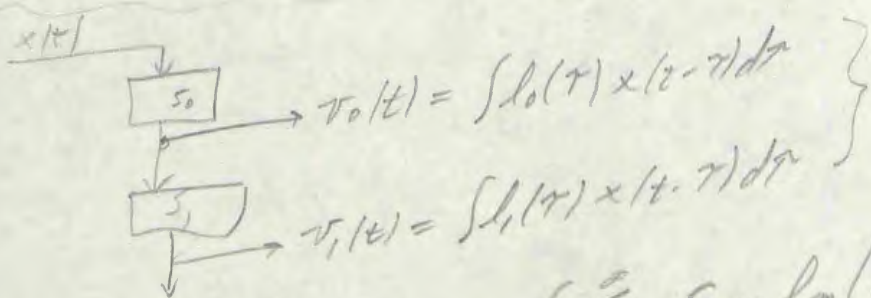 x(t)
S₀
v₀(t) = ∫l₀(τ) x(t-τ)dτ
S₁
v₁(t) = ∫l₁(τ) x(t-τ)dτ